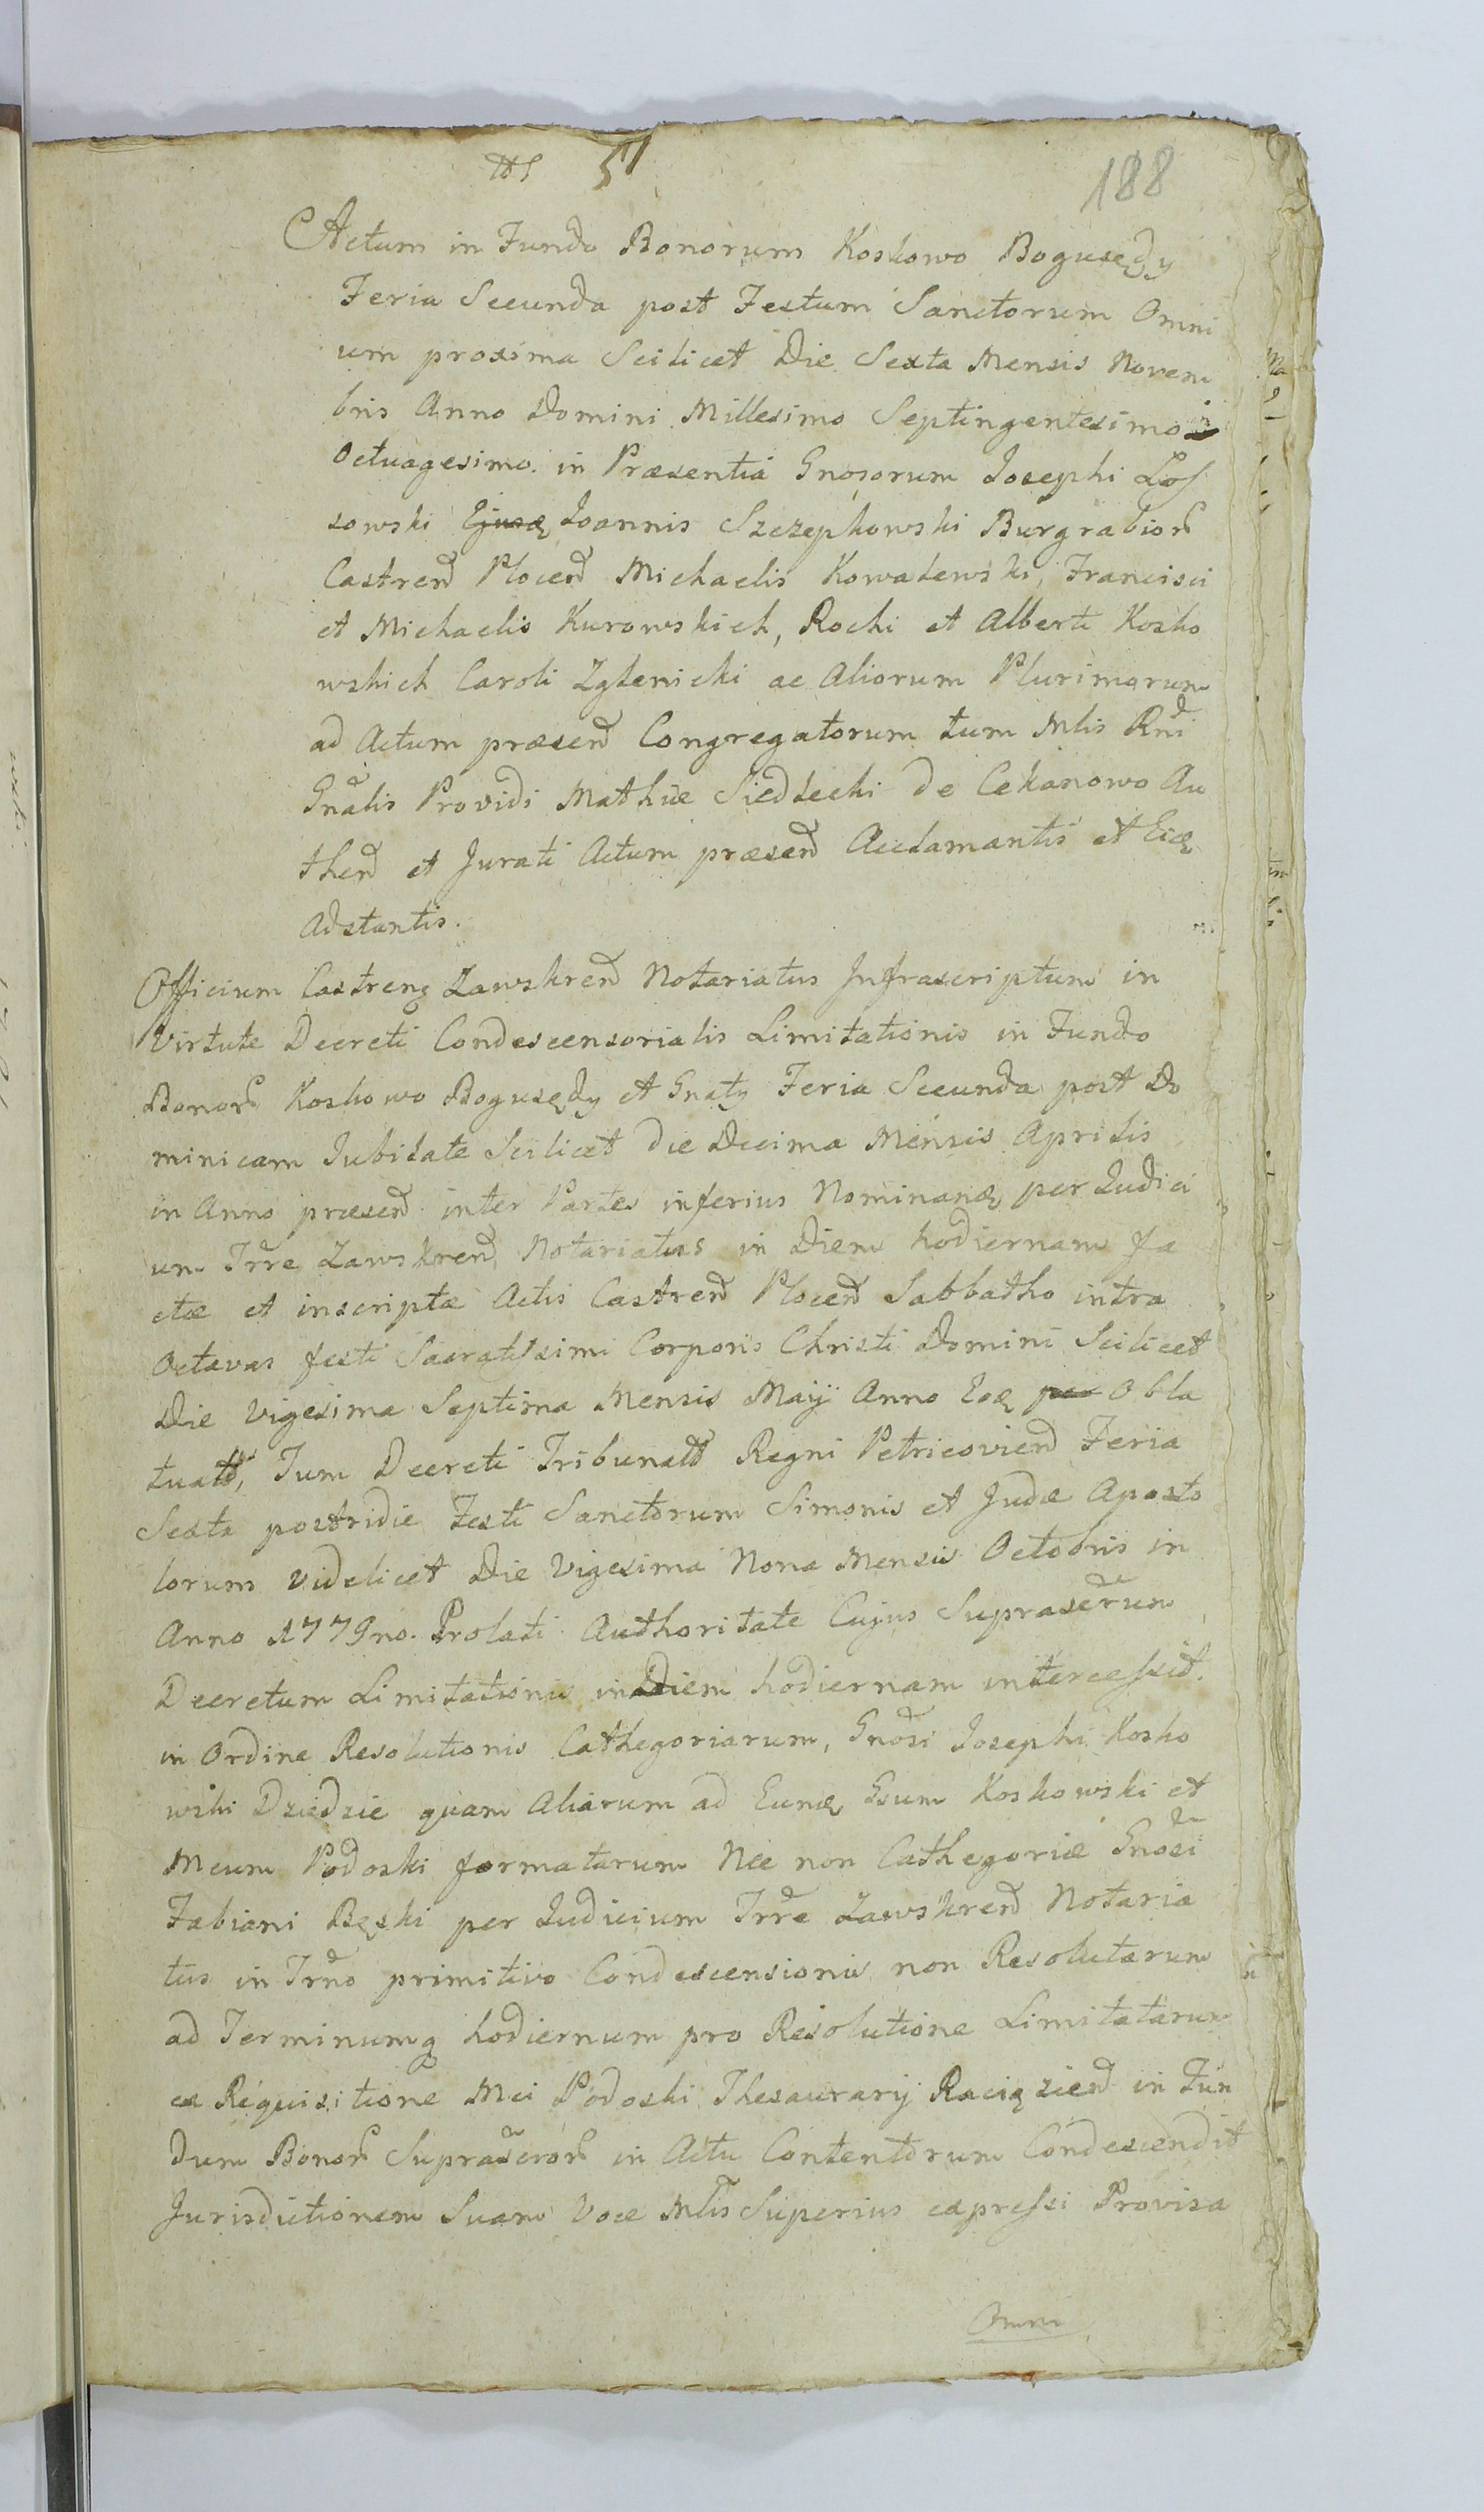 51
188
Actum in Fundo Bonorum Koskowo Bogusędy
Feria Secunda post Festum Sanctorum Omni
um proxima Scilicet Die Sexta Mensis Novem
bris Anno Domini Millesimo Septingentesimo
Octuagesimo. in Præsentia Gnosorum Josephi Los
sowski Joannis Szczepkowski Burgrabior
Castren Plocen Michaelis Kowalewski, Francisci
et Michaelis Kurowskich, Rochi et Alberti Kosko
wskich Caroli Zglenicki ac Aliorum Plurimorum
ad Actum præsen Congregatorum tum Mlis Rni
Gnalis Providi Mathiæ Siedlecki de Cekanowo Au
then et Jurati Actum præsen Acclamantis et Eidq
Adstantis.
Officium Castrense Zawskren Notariatus Infrascriptum in
Virtute Decreti Condescensorialis Limitationis in Fundo
Bonor Koskowo Bogusędy et Gnaty Feria Secunda post Do
minicam Jubilate Scilicet die Decima Mensis Aprilis
in Anno præsen inter Partes inferius Nominanq per Judici
um Trre Zawskren Notariatus in Diem hodiernam fa
ctæ et inscriptæ Actis Castren Plocen Sabbatho intra
Octavas festi Sacratissimi Corporis Christi Domini Scilicet
Die Vigesima Septima Mensis Maij Anno Eoq Obla
tuatt, Tum Decreti Tribunalt Regni Petricovien Feria
Sexta postridie Festi Sanctorum Simonis et Judæ Aposto
lorum videlicet Die Vigesima Nona Mensis Octobris in
Anno 1779no. Prolati Authoritate Cujus Suprascrum
Decretum Limitationis in Diem hodiernam intercessit.
in Ordine Resolutionis Cathegoriarum, Gnosi Josephi Kosko
wski Dziedzic quam Aliarum ad Eunq Gsum Koskowski et
Mcum Podoski formatarum Nec non Cathegoriæ Gnosi
Fabiani Bęski per Judicium Trre Zawskren Notaria
tus in Trno primitivo Condescensionis non Resolutarum
ad Terminumq hodiernum pro Resolutione Limitatarum
ex Requisitione Mci Podoski Thesaurarij Raciązien in Fun
dum Bonor Suprascror in Actu Contentorum Condescendit
Jurisdictionem Suam Voce Mlis Superius expressi Provisa
Omni